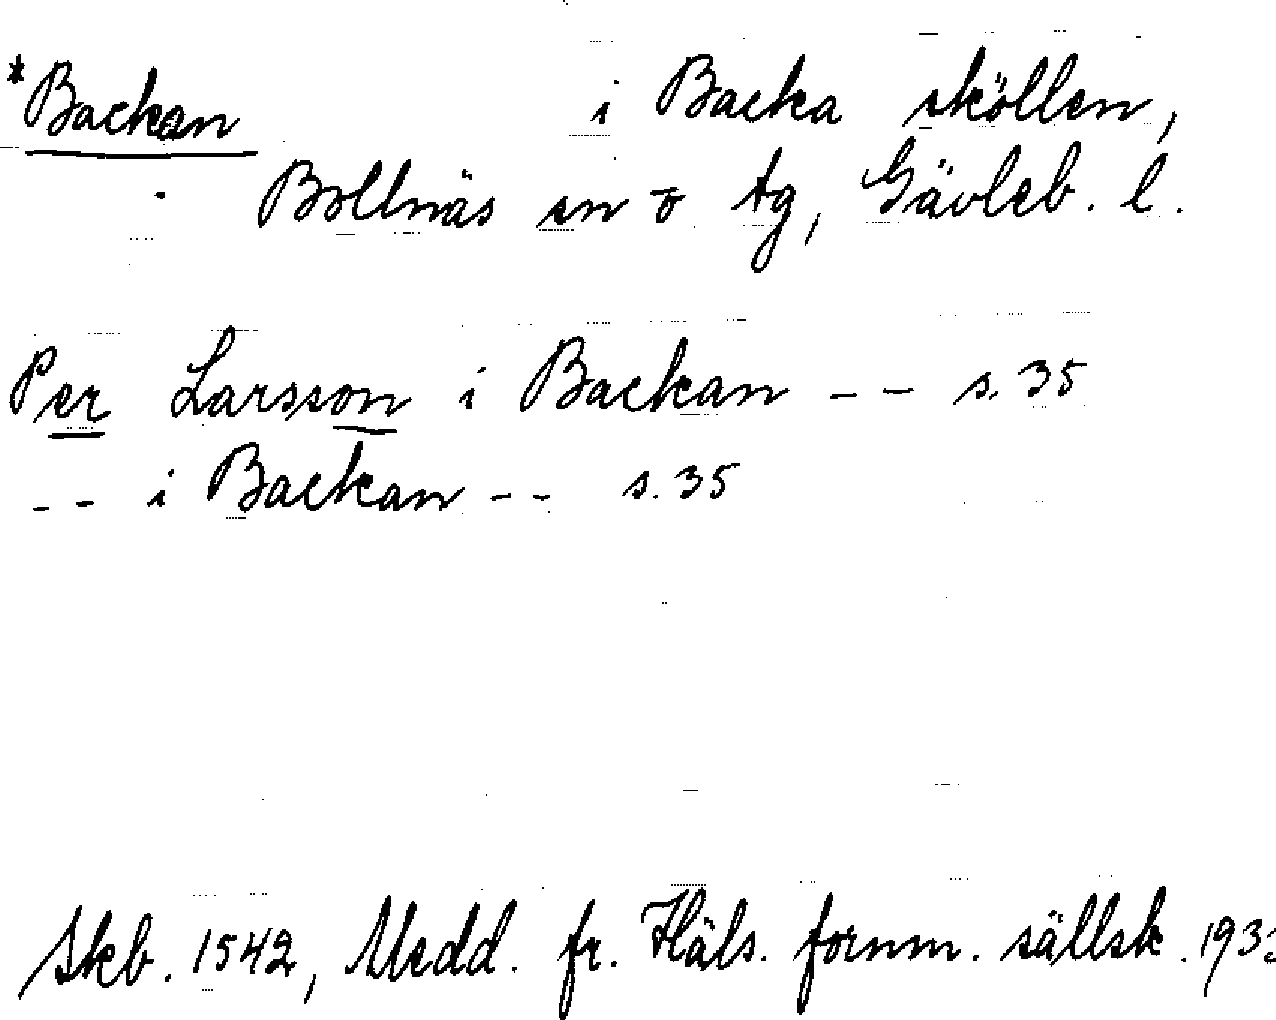 *Backan i Backa sköllen,
Bollnäs sn o tg, Gävleb. l.
Per Larsson i Backan -- s. 35
-- i Backan -- s. 35
Skb. 1542, Medd. fr. Häls. fornm. sällsk. 193